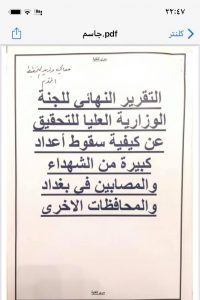 ٢٢:٤٧
كلنتر
جاسم.pdf
التقرير النهائي للجنة
الوزارية العليا للتحقيق
عن كيفية سقوط أعداد
كبيرة من الشهداء
والمصابين في بغداد
والمحافظات الاخرى